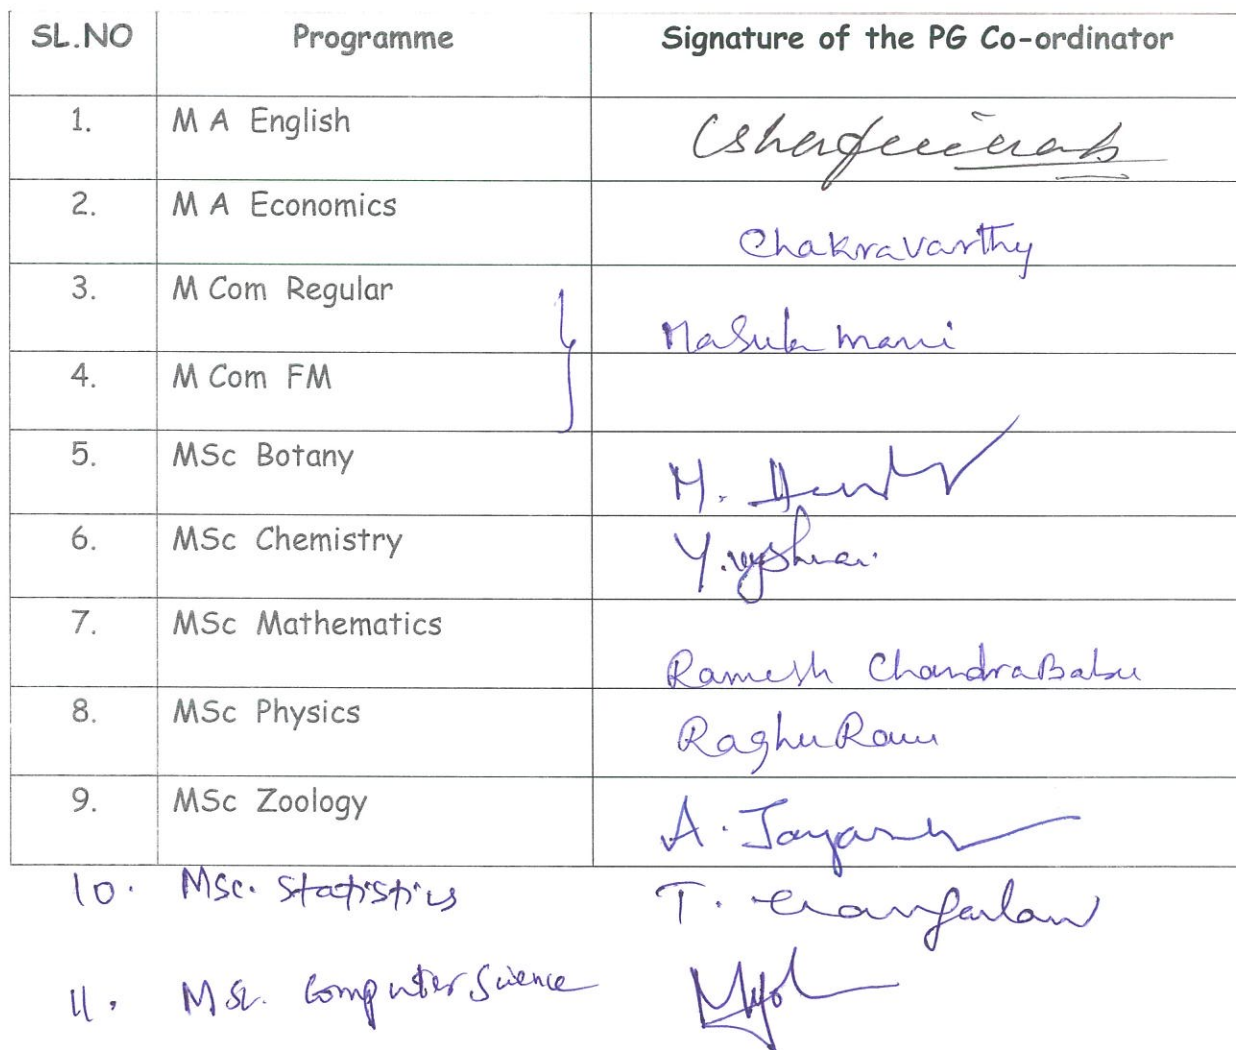 SL.NO Programme Signature of the PG Co-ordinator
1. M A English
2. M A Economics Chakravarthy
3. M Com Regular mani
4. M Com FM
5. MSc Botany M.
6. MSc Chemistry Y.
7. MSc Mathematics Ramesh ChandraBabu
8. MSc Physics RaghuRam
9. MSc Zoology A.
10. MSc. Statistics T.
11. MSc. Computer Science